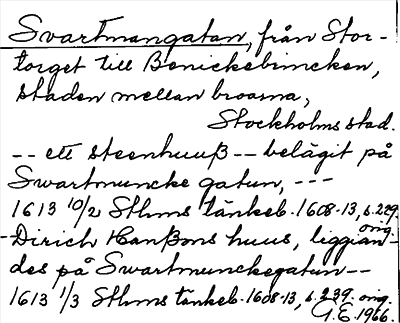 Svartmangatan, från Stor-
torget till Benickebrincken,
staden mellan broarna,
Stockholms stad.
-- ett steenhuuß -- belägit på
Swartmuncke gatun, ---
1613 10/2 Sthms tänkeb. 1608-13, s. 229.
orig.
-Dirich Hanßons huus, liggian-
des på Swartmunckegatun--
1613 1/3 Sthms tänkeb. 1608-13, s. 239. orig.
G.E. 1966.